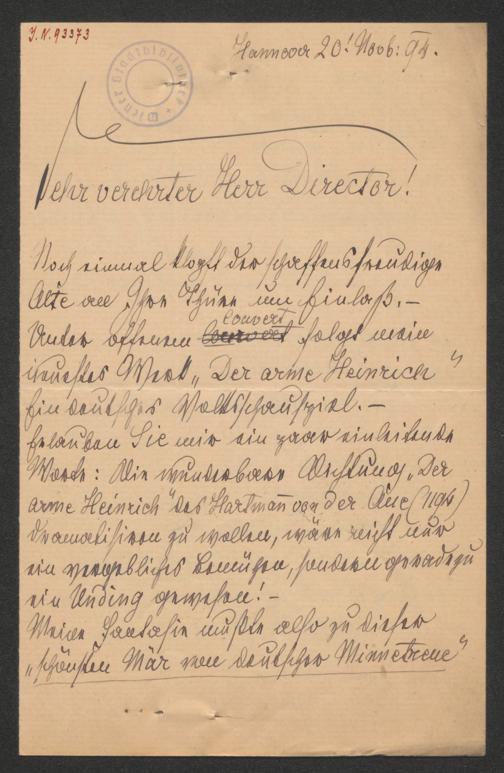 J.N. 93373
Wiener Stadtbibliothek
Hannover 20! Novb: 94.
Sehr verehrter Herr Director!
Noch einmal klopft der schaffensfreudige
Alte an Ihre Thüre um Einlaß. –
Unter offenem Couvert folgt mein
neuestes Werk „Der arme Heinrich"
Ein deutsches Volksschauspiel. –
Erlauben Sie mir ein paar einleitende
Worte: Die wunderbare Dichtung „Der
arme Heinrich" des Hartmann von der Aue (1190)
dramatisiren zu wollen, wäre nicht nur
ein vergebliches Bemühen, sondern geradezu
ein Unding gewesen! –
Meine Fantasie mußte also zu dieser
„schönsten Mär von deutscher Minnetreue"